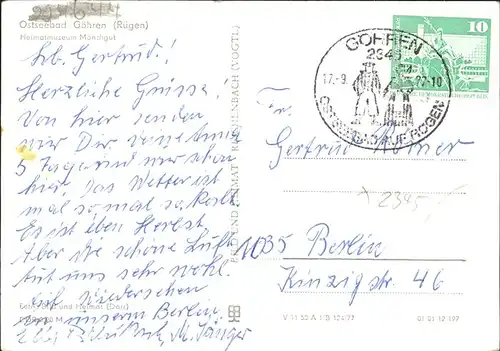 Ostseebad Göhren (Rügen)
Heimatmuseum Mönchgut
Lb. Gertrud!
Herzliche Grüsse
Von hier senden
wir Dir.
5 Tage sind wir schon
hier. Das Wetter ist
mal so, mal so, kalt.
Es ist eben Herbst.
Aber die schöne Luft
tut uns sehr wohl.
Auf Wiedersehen
in unserem Berlin.
M. Jänger
BILD UND HEIMAT REICHENBACH (VOGTL)
V 11 50 A 1/B 124/77
01 01 12 197
GÖHREN
2345
17.-9.
-10
OSTSEEBAD AUF RÜGEN
10
Fr.
Gertrud
2345,-
1035 Berlin
Kinzigstr. 46